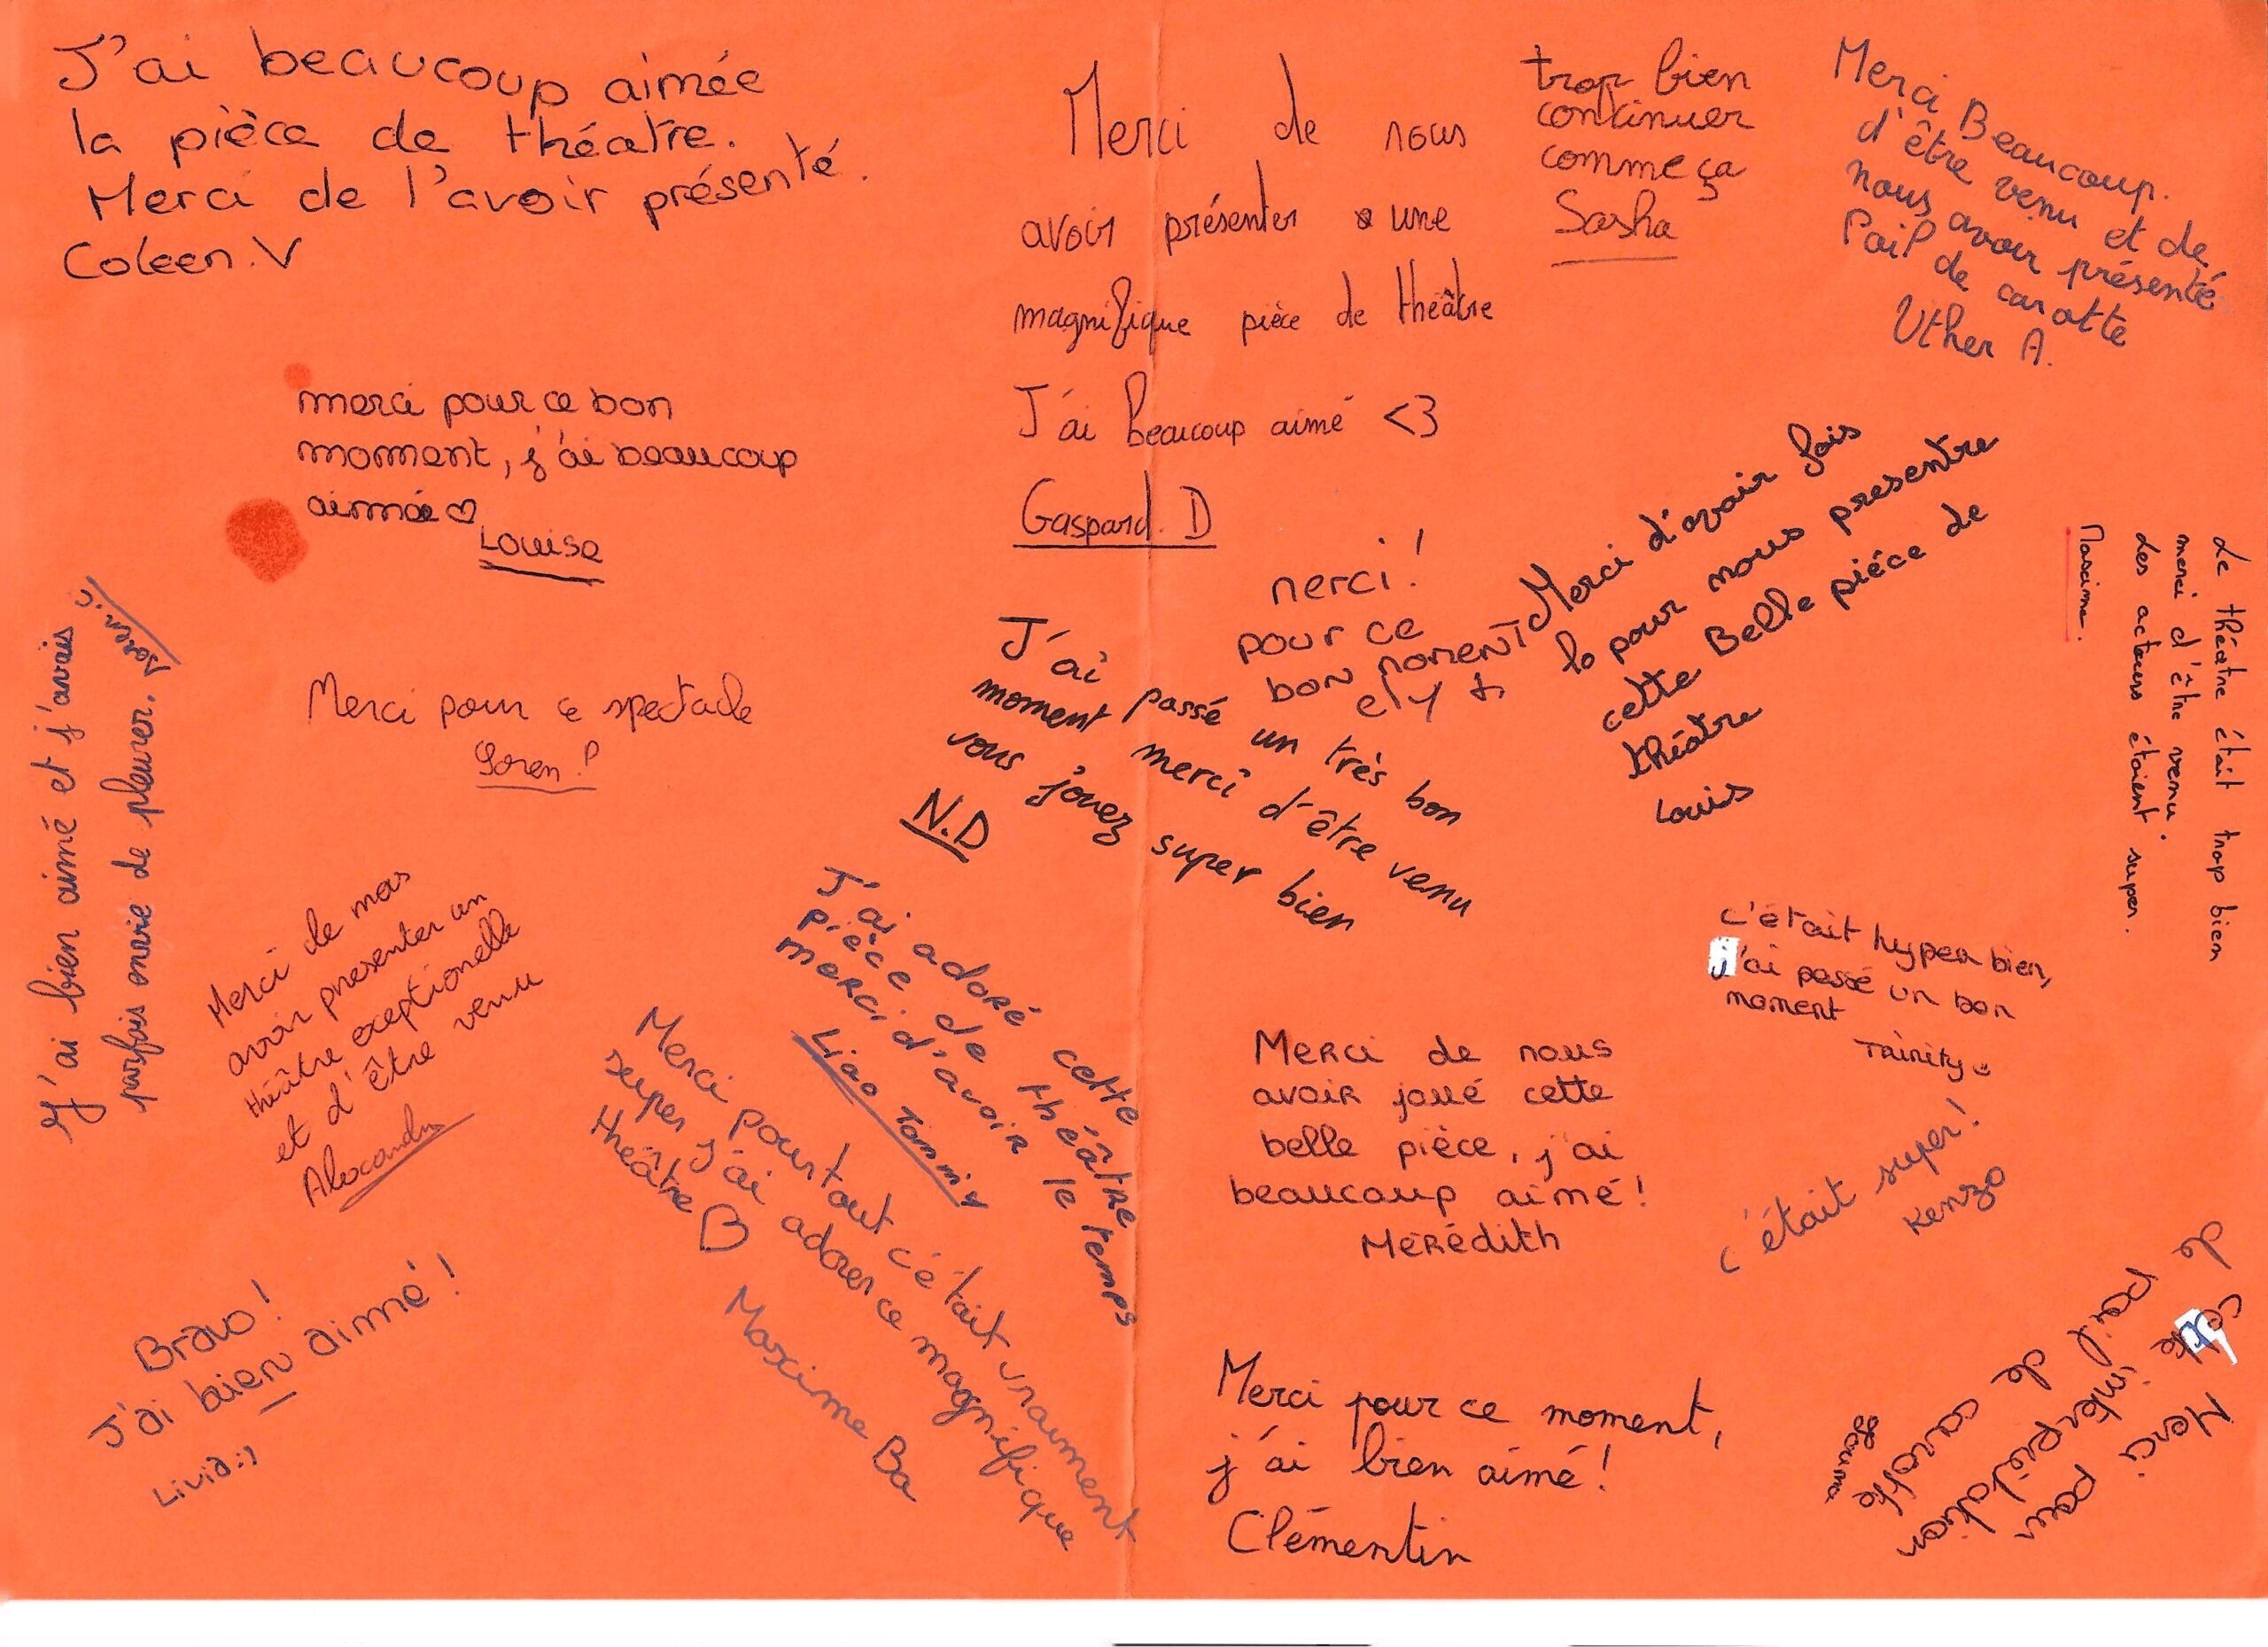 J'ai beaucoup aimée
la pièce de théatre.
Merci de l'avoir présenté.
Coleen.V
merci pour ce bon
moment, j'ai beaucoup
aimée ♡
Louise
J'ai bien aimé et j'avais
parfois envie de pleurer.
Merci pour ce spectacle
Soren.P
Merci de mas
avoir presenter un
théâtre exeptionelle
et d'être venu
Bravo!
J'ai bien aimé!
Livia:)
Merci de nous
avoir présenter une
magnifique pièce de théâtre
J'ai Beaucoup aimé <3
Gaspard.D
trop bien
continuer
comme ça
Sasha
Merci Beaucoup.
d'être venu et de
nous avoir présenté
Poil de carotte
Uther A.
merci!
pour ce
bon moment
Merci d'avoir fais
pour nous presentre
cette Belle piéce de
théâtre
Louis
Le théâtre était trop bien
merci d'être venu.
Les acteurs étaient super.
Maxime.
J'ai passé un très bon
moment merci d'être venu
vous jouez super bien
N.D
J'ai adoré cette
pièce de théâtre
merci d'avoir le temps
Merci pour tout c'était vraiment
super j'ai adorer ce magnifique
theâtre ♡
Maxime Ba
c'était hyper bien,
j'ai passé un bon
moment
Trinity
Merci de nous
avoir joué cette
belle pièce, j'ai
beaucoup aimé!
Merédith
c'était super!
Kenzo
Merci pour ce moment,
j'ai bien aimé!
Clémentin
Merci pour
cette interprétation
de poil
de carotte